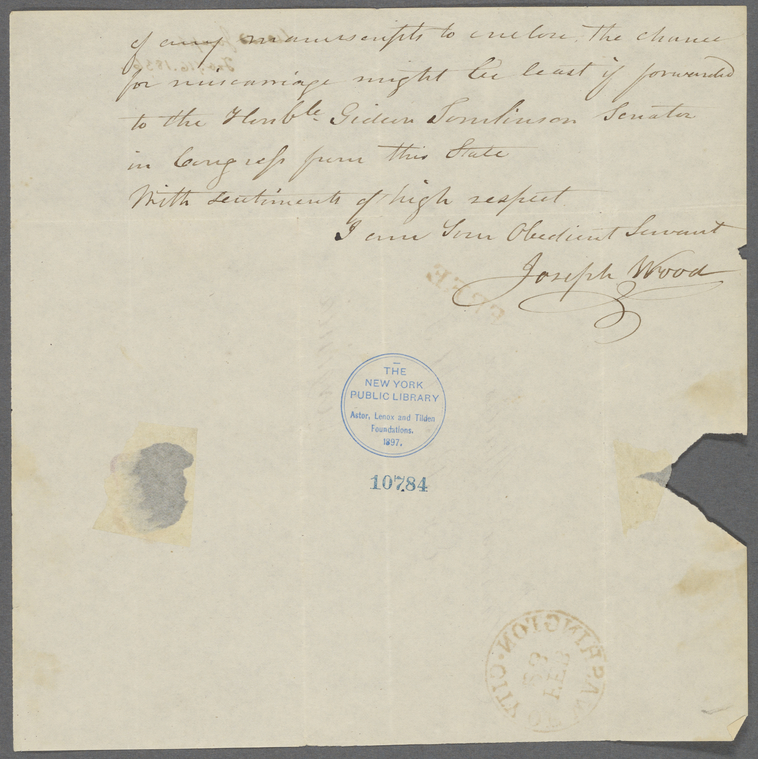 of any manuscripts to enclose. The chance
for miscarriage might be least if forwarded
to the Honble. Gideon Tomlinson Senator
in Congress from this State
With sentiments of high respect
I am Your Obedient Servant
Joseph Wood
FREE
THE
NEW YORK
PUBLIC LIBRARY
Astor, Lenox and Tilden
Foundations.
1897.
10784
FEB